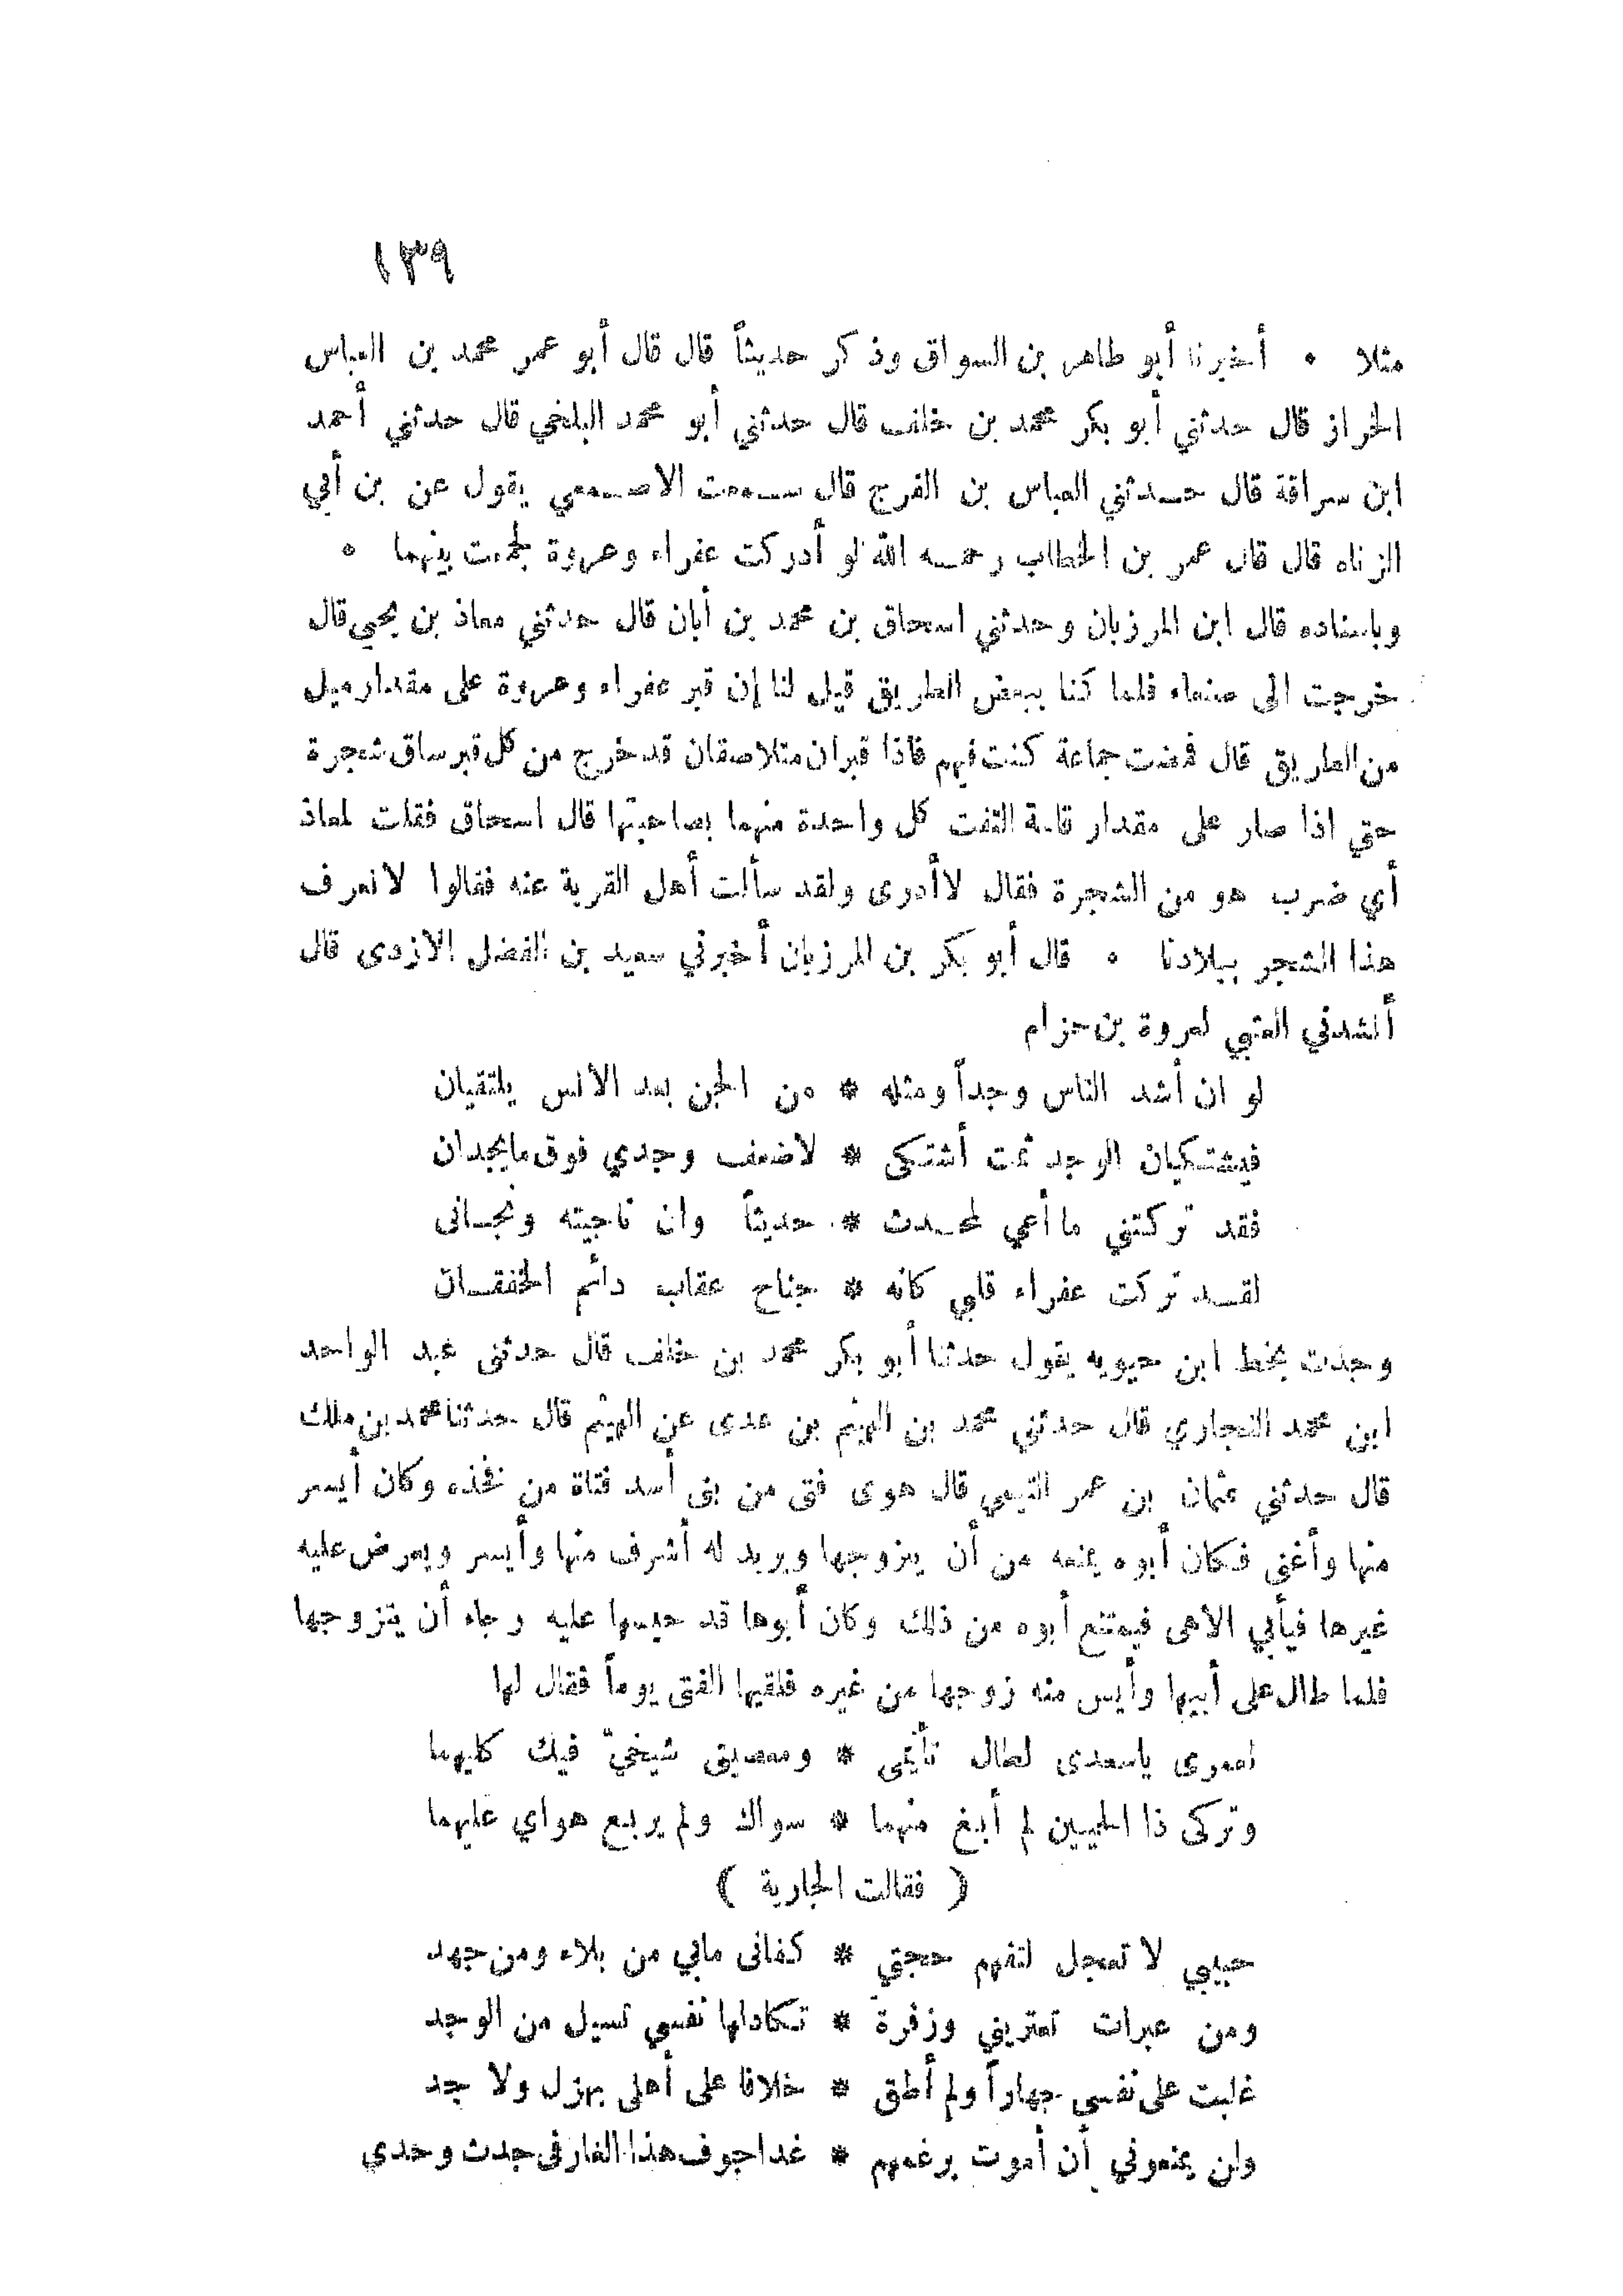 ١٣٩
مثلا ٥ أخبرنا أبو طاهر بن السواق وذكر حديثاً قال قال أبو عمر محمد بن العباس
الخراز قال حدثني أبو بكر محمد بن خلف قال حدثني أبو محمد البلخي قال حدثني أحمد
ابن سراقة قال حدثني العباس بن الفرج قال سمعت الاصمعي يقول عن بن أبي
الزناه قال قال عمر بن الخطاب رحمه الله لو أدركت عفراء وعروة لجمعت بينهما ٥
وباسناده قال ابن المرزبان وحدثني اسحاق بن محمد بن أبان قال حدثني معاذ بن يحيي قال
خرجت الى صنعاء فلما كنا ببعض الطريق قيل لنا إن قبر عفراء وعروة على مقدار ميل
من الطريق قال فمضت جماعة كنت فيهم فاذا قبران متلاصقان قد خرج من كل قبر ساق شجرة
حتي اذا صار على مقدار قامة التفت كل واحدة منهما بصاحبتها قال اسحاق فقلت لمعاذ
أي ضرب هو من الشجرة فقال لا أدرى ولقد سألت أهل القرية عنه فقالوا لا نعرف
هذا الشجر ببلادنا ٥ قال أبو بكر بن المرزبان أخبرني سعيد بن الفضل الازدى قال
أنشدني العتبي لعروة بن حزام
لو ان أشد الناس وجداً ومثله * من الجن بعد الانس يلتقيان
فيشتكيان الوجد ثمت أشتكى * لاضعف وجدي فوق ما يجدان
فقد تركتني ما أعي لمحدث * حديثاً وان ناجيته ونجانى
لقد تركت عفراء قلبي كانه * جناح عقاب دائم الخفقان
وجدت بخط ابن حيويه يقول حدثنا أبو بكر محمد بن خلف قال حدثنى عبد الواحد
ابن محمد النجاري قال حدثني محمد بن الهيثم بن عدى عن الهيثم قال حدثنا محمد بن ملك
قال حدثني عثمان بن عمر التيمي قال هوى فتى من بنى أسد فتاة من فخذه وكان أيسر
منها وأغنى فكان أبوه يمنعه من أن يتزوجها ويريد له أشرف منها وأيسر ويعرض عليه
غيرها فيأبي الاهى فيمتنع أبوه من ذلك وكان أبوها قد حبسها عليه رجاء أن يتزوجها
فلما طال على أبيها وأيس منه زوجها من غيره فلقيها الفتى يوماً فقال لها
لعمرى ياسعدى لطال تأيمى * ومعصيتى شيخيّ فيك كليهما
وتركى ذا الحيين لم أبغ منهما * سواك ولم يربع هواي عليهما
( فقالت الجارية )
حبيبي لا تعجل لتفهم حجتي * كفانى مابي من بلاء ومن جهد
ومن عبرات تعتريني وزفرة * تكادلها نفسي تسيل من الوجد
غلبت على نفسى جهاراً ولم أطق * خلافا على أهلى بهزل ولا جد
ولن يمنعوني أن أموت برغمهم * غدا جوف هذا الغار فى جدث وحدي